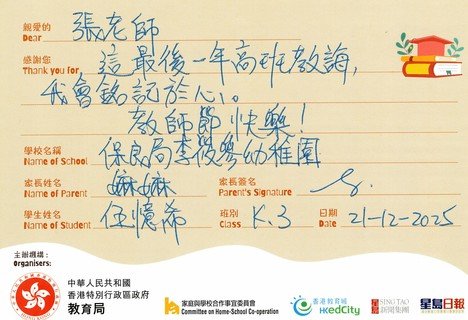 親愛的 張老師
Dear
感謝您 這最後一年高班教誨，
Thank you for
我會銘記於心。
教師節快樂！
學校名稱 保良局李俊駒幼稚園
Name of School
家長姓名 嫲嫲 家長簽名
Name of Parent Parent's Signature
學生姓名 伍憶希 班別 K.3 日期 21-12-2025
Name of Student Class Date
主辦機構：
Organisers:
中華人民共和國
香港特別行政區政府
教育局
家庭與學校合作事宜委員會
Committee on Home-School Co-operation
香港教育城
HKedCity
星島 SING TAO
新聞集團
星島日報